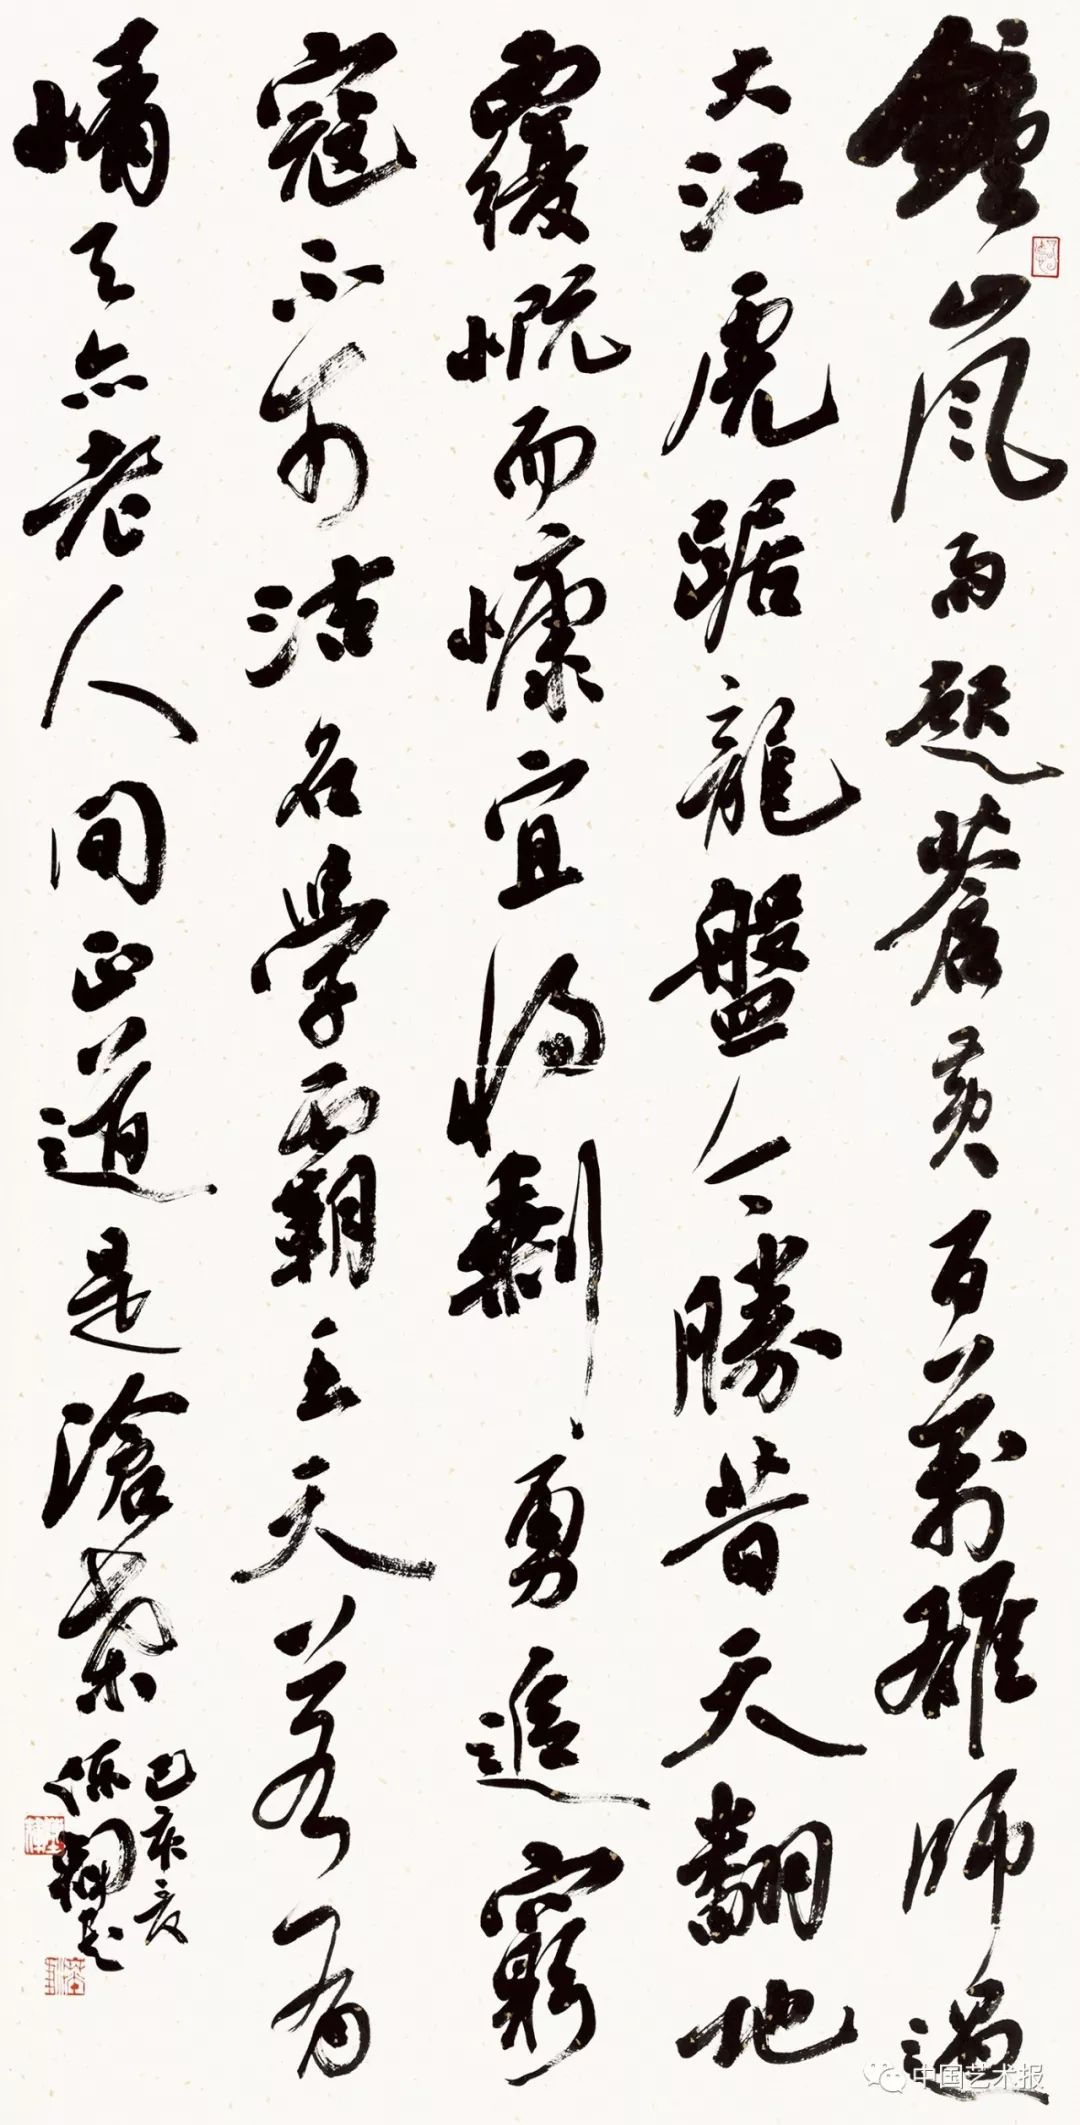 鐘山風雨起蒼黃百萬雄師過
大江虎踞龍盤今勝昔天翻地
覆慨而慷宜將剩勇追窮
寇不可沽名學霸王天若有
情天亦老人間正道是滄桑
己亥
中国艺术报